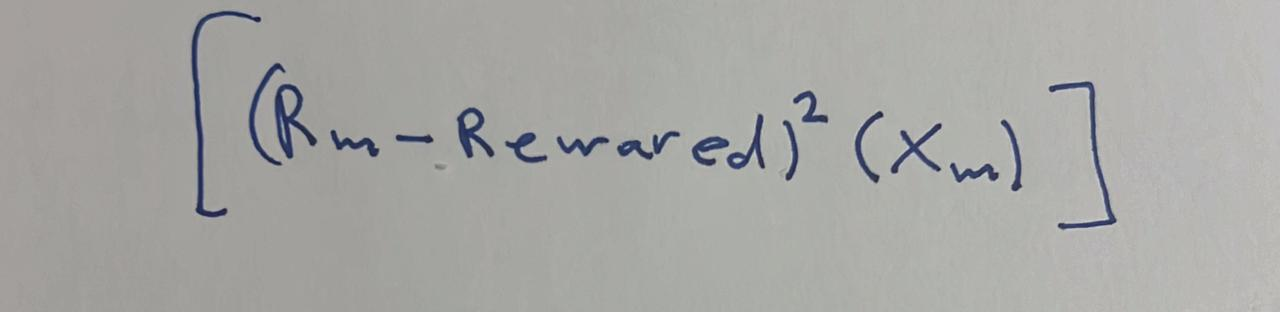 [(Rm - Rewared)² (Xm)]